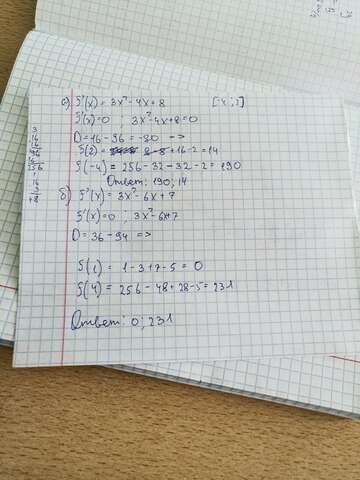 а) f'(x) = 3x² - 4x + 8 [-4; 2]
f'(x) = 0 ; 3x² - 4x + 8 = 0
D = 16 - 96 = -80 =>
f(2) = 8 - 8 + 16 - 2 = 14
f(-4) = 256 - 32 - 32 - 2 = 190
Ответ: 190; 14
б) f'(x) = 3x² - 6x + 7
f'(x) = 0 ; 3x² - 6x + 7
D = 36 - 94 =>
f(1) = 1 - 3 + 7 - 5 = 0
f(4) = 256 - 48 + 28 - 5 = 231
Ответ: 0; 231